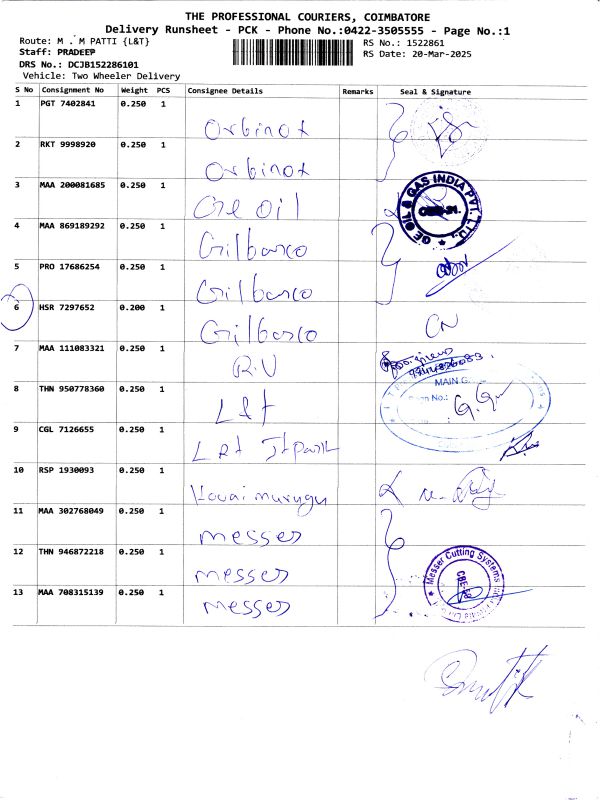 THE PROFESSIONAL COURIERS, COIMBATORE
Delivery Runsheet - PCK - Phone No.:0422-3505555 - Page No.:1
Route: M . M PATTI {L&T}
RS No.: 1522861
Staff: PRADEEP
RS Date: 20-Mar-2025
DRS No.: DCJB152286101
Vehicle: Two Wheeler Delivery
S No Consignment No Weight PCS Consignee Details Remarks Seal & Signature
1 PGT 7402841 0.250 1 Orbinox
2 RKT 9998920 0.250 1 Orbinox
3 MAA 200081685 0.250 1 GE oil
GE OIL & GAS INDIA PVT. LTD.
4 MAA 869189292 0.250 1 Gilbarco
5 PRO 17686254 0.250 1 Gilbarco
6 HSR 7297652 0.200 1 Gilbarco CN
7 MAA 111083321 0.250 1 R.V
8 THN 950778360 0.250 1 L&t
MAIN G
9 CGL 7126655 0.250 1 L&t Itpark
10 RSP 1930093 0.250 1 Kovai murugu
11 MAA 302768049 0.250 1 messer
12 THN 946872218 0.250 1 messer
Messer Cutting Systems
13 MAA 708315139 0.250 1 messer